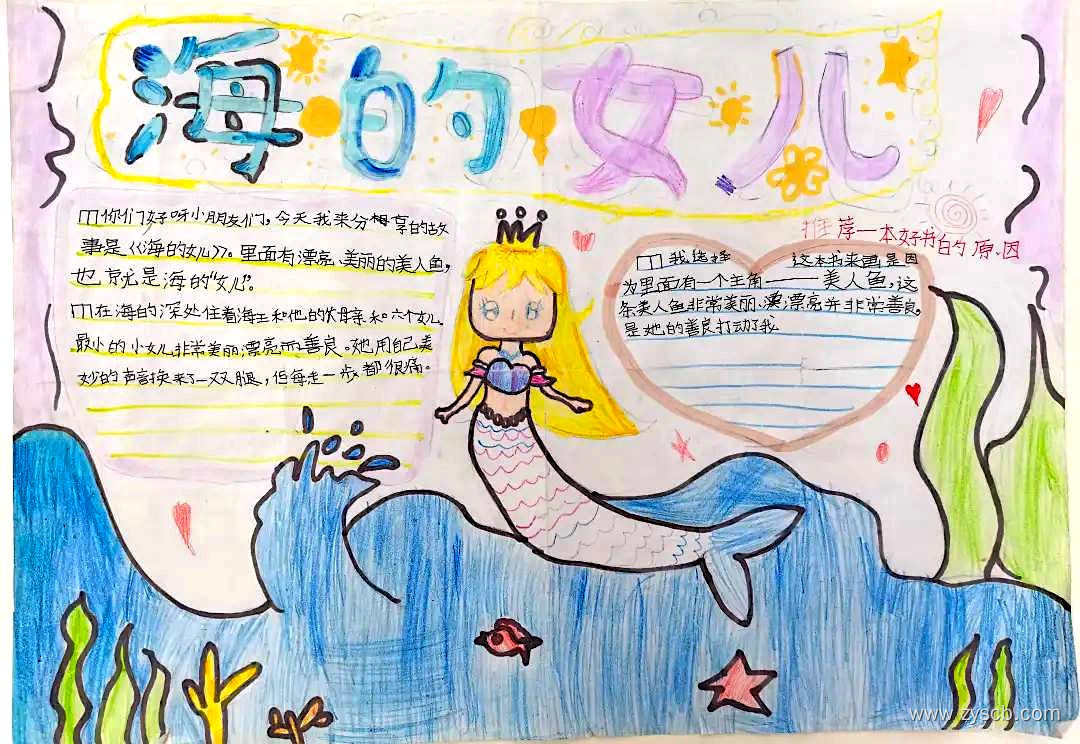 海的女儿
你们好呀小朋友们，今天我来分享的故
事是《海的女儿》。里面有漂亮、美丽的美人鱼，
也就是海的“女儿”。
在海的深处住着海王和他的父母亲和六个女儿
最小的小女儿非常美丽漂亮而善良。她用自己美
妙的声音换来了一双腿，但每走一步都很痛。
推荐一本好书的原因
我选择 这本书来画是因
为里面有一个主角——美人鱼，这
条美人鱼非常美丽、漂亮并非常善良，
是她的善良打动了我
www.zyscb.com